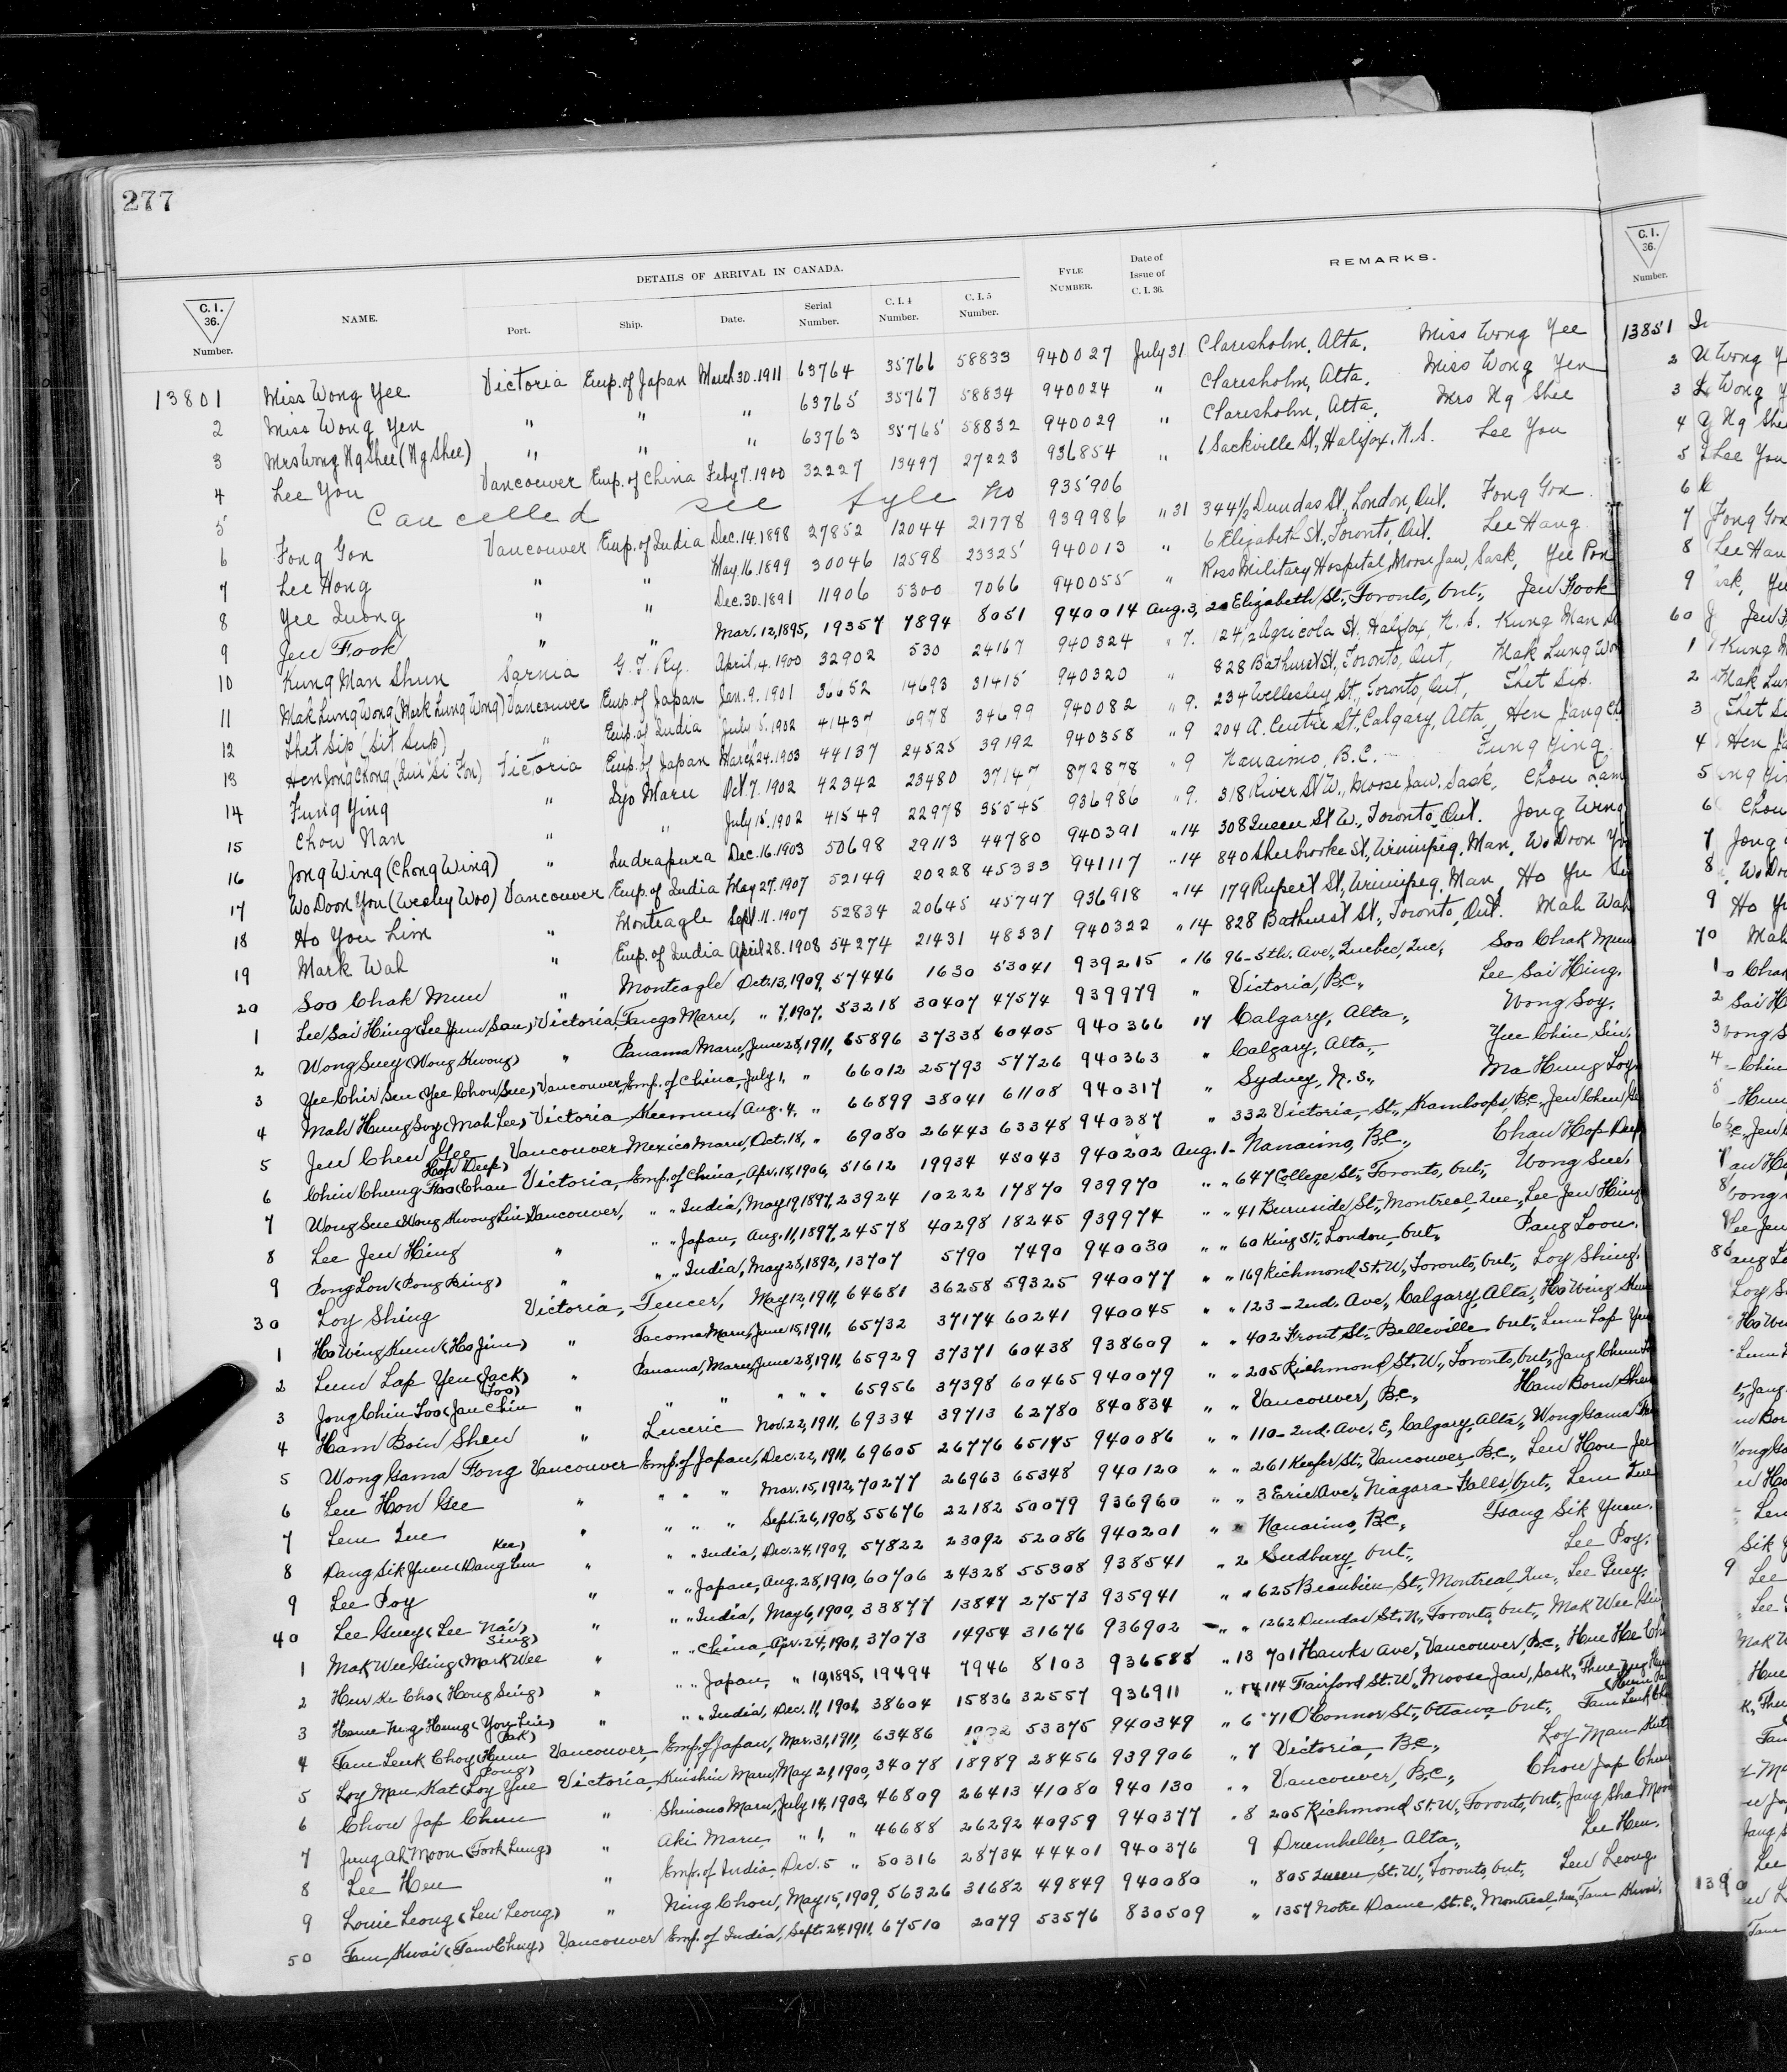 277
DETAILS OF ARRIVAL IN CANADA.
C.I. 36. Number. NAME. Port. Ship. Date. Serial Number. C.I.4 Number. C.I.5 Number. FYLE NUMBER. Date of Issue of C.I.36. REMARKS. C.I. 36. Number.
13801 Miss Wong Yee Victoria Emp. of Japan March 30. 1911 63764 35766 58833 940027 July 31 Claresholm, Alta. Miss Wong Yee 13851
2 Miss Wong Yen " " " 63765 35767 58834 940024 " Claresholm, Alta. Miss Wong Yen 2
3 Mrs Wong Ng Shee (Ng Shee) " " " 63763 35765 58832 940029 " Claresholm, Alta. Mrs Ng Shee 3
4 Lee You Vancouver Emp. of China Feby 7. 1900 32227 13497 27223 936854 " 6 Sackville St, Halifax. N.S. Lee You 4
5 Cancelled see fyle no 935906 5
6 Fong Gon Vancouver Emp. of India Dec. 14. 1898 27852 12044 21778 939986 " 31 344 1/2 Dundas St, London, Ont. Fong Gon 6
7 Lee Hong " " May. 16. 1899 30046 12598 23325 940013 " 6 Elizabeth St, Toronto, Ont. Lee Hang 7
8 Yee Quong " " Dec. 30. 1891 11906 5300 7066 940055 " Ross Military Hospital, Moose Jaw, Sask, Yee Pon 8
9 Jew Fook " " Mar. 12, 1895, 19357 7894 8051 940014 Aug. 3, 20 Elizabeth St., Toronto, Ont., Jew Fook 9
10 Kung Man Shun Sarnia G.T. Ry. April. 4. 1900 32902 530 24167 940324 " 7. 124 1/2 Agricola St, Halifax, N.S. Kung Man 60
11 Mak Lung Wong (Mark Lung Wong) Vancouver Emp. of Japan Jan. 9. 1901 36652 14693 31415 940320 " 828 Bathurst St, Toronto, Ont, Mak Lung Won 1
12 Thet Sip (Sit Sup) " Emp. of India July 8. 1902 41437 6978 34699 940082 " 9. 234 Wellesley St, Toronto, Ont, Thet Sip. 2
13 Hen Jong Chong (Lui Si Fon) Victoria Emp. of Japan March 24. 1903 44137 24525 39192 940358 " 9 204 A. Centre St, Calgary, Alta, Hen Jang 3
14 Fung Ying " Iyo Maru Oct 7. 1902 42342 23480 37147 872878 " 9 Nanaimo, B.C. Fung Ying 4
15 Chow Nan " " July 15. 1902 41549 22978 35545 936986 " 9. 318 River St W., Moose Jaw. Sask, Chou Lam 5
16 Jong Wing (Chong Wing) " Indrapura Dec. 16. 1903 50698 29113 44780 940391 " 14 308 Queen St W., Toronto, Ont. Jong Wing 6
17 Wo Doon You (Wesley Woo) Vancouver Emp. of India May 27. 1907 52149 20228 45333 941117 " 14 840 Sherbrooke St, Winnipeg, Man, Wo Doon You 7
18 Ho You Lim " Monteagle Sept. 11. 1907 52834 20645 45747 936918 " 14 179 Rupert St, Winnipeg, Man, Ho Yu 8
19 Mark Wah " Emp. of India April 28. 1908 54274 21431 48331 940322 " 14 828 Bathurst St, Toronto, Ont. Mah Wah 9
20 Soo Chak Mun " Monteagle Oct. 13, 1909, 57446 1630 53041 939215 " 16 96-5th. Ave., Quebec, Que, Soo Chak Mun 70
1 Lee Sai Hing (Lee Yum Sau) Victoria, Tango Maru, " 7, 1907, 53218 30407 47574 939979 " Victoria, B.C., Lee Sai Hing. 1
2 Wong Suey (Wong Kwong) " Panama Maru, June 28, 1911, 65896 37338 60405 940366 17 Calgary, Alta., Wong Soy. 2
3 Yee Chir Sen (Yee Chow See) Vancouver, Emp. of China, July 1, " 66012 25793 57726 940363 " Calgary, Alta., Yee Chin Sin. 3
4 Mah Hung Soy (Mah Lee) Victoria Keemun, Aug. 4, " 66899 38041 61108 940317 " Sydney, N.S., Ma Hung Loy 4
5 Jew Chew Gee Vancouver Mexico Maru, Oct. 18, " 69080 26443 63348 940387 " 332 Victoria St., Kamloops, B.C., Jew Chew 5
6 Chin Chung Foo (Chan Hop Deep) Victoria, Emp. of China, Apr. 18, 1906, 51612 19934 45043 940202 Aug. 1. Nanaimo, B.C., Chan Hop 6
7 Wong Sue (Wong Kwong Lin) Vancouver, " " India, May 19, 1897, 23924 10222 17870 939970 " " 647 College St., Toronto, Ont., Wong Sue. 7
8 Lee Jew Hing " " " Japan, Aug. 11, 1897, 24578 40298 18245 939974 " " 41 Burnside St., Montreal, Que., Lee Jew Hing 8
9 Pong Lon (Pong King) " " " India, May 28, 1892, 13707 5790 7490 940030 " " 60 King St., London, Ont., Pang Loon.
30 Loy Shing Victoria, Teucer, May 12, 1911, 64681 36258 59325 940077 " " 169 Richmond St. W., Toronto, Ont., Loy Shing.
1 Ho Wing Kum (Ho Jim) " Tacoma Maru, June 15, 1911, 65732 37174 60241 940045 " " 123-2nd. Ave., Calgary, Alta., Ho Wing
2 Lum Lap Yen (Jack) " Panama, Maru, June 28, 1911, 65929 37371 60438 938609 " " 402 Front St., Belleville Ont., Lum Lap Yen
3 Jong Chin Foo (Jan Chin Foo) " " " " " " 65956 37398 60465 940079 " " 205 Richmond St. W., Toronto, Ont., Jang Chun
4 Ham Boin Shen " Luceric Nov. 22, 1911, 69334 39713 62780 840834 " " Vancouver, B.C., Ham Born Shen
5 Wong Gama Fong Vancouver Emp. of Japan, Dec. 22, 1911, 69605 26776 65195 940086 " " 110-2nd. Ave. E., Calgary, Alta., Wong Gama
6 Leu Hon Gee " " " " Mar. 15, 1912, 70277 26963 65348 940120 " " 261 Keefer St., Vancouver, B.C., Leu Hou Jee
7 Lem Que " " " " Sept. 26, 1908, 55676 22182 50079 936960 " " 3 Erie Ave., Niagara Falls, Ont., Lem
8 Dang Sik Yuen (Dang Lem Kee) " " " India, Dec. 24, 1909, 57822 23092 52086 940201 " " Nanaimo, B.C., Tsang Sik Yuen.
9 Lee Poy " " " Japan, Aug. 28, 1910, 60706 24328 55308 938541 " 2 Sudbury, Ont., Lee Poy. 9
40 Lee Guey (Lee Nai) " " " India, May 6, 1900, 33877 13847 27573 935941 " " 625 Beaubien St., Montreal, Que., Lee Guey.
1 Mak Wee Ging (Mark Wee Sing) " " " China, Apr. 24, 1901, 37073 14954 31676 936902 " " 1262 Dundas St. N., Toronto, Ont., Mak Wee
2 Heur Ke Cho (Hong Sing) " " " Japan, " 10, 1895, 19494 7946 8103 936588 " 13 701 Hawks Ave, Vancouver, B.C., Hue Hee
3 Hame Mg Hung (You Lin) " " " India, Dec. 11, 1901, 38604 15836 32557 936911 " 14 114 Fairford St. W., Moose Jaw, Sask.,
4 Tam Leuk Choy (Hum Pak) Vancouver Emp. of Japan, Mar. 31, 1911, 63486 53375 940349 " 6 71 O'Connor St., Ottawa, Ont., Tam Leuk
5 Loy Man Kat (Loy Yue Pong) Victoria, Kinshiu Maru, May 21, 1900, 34078 18989 28456 939906 " 7 Victoria, B.C., Loy Man Kat
6 Chow Jap Chun " Shinano Maru, July 14, 1903, 46809 26413 41080 940130 " " Vancouver, B.C., Chou Jap Chun
7 Jung Ah Moon (Fook Lung) " Aki Maru, " 1, " 46688 26292 40959 940377 " 8 205 Richmond St. W., Toronto, Ont., Jang Sha Moon
8 Lee Hen " Emp. of India, Dec. 5 " 50316 28734 44401 940376 9 Drumheller, Alta., Lee Hen.
9 Louie Leong (Leu Leong) " Ning Chow, May 15, 1909, 56326 31682 49849 940080 " 805 Queen St. W., Toronto, Ont., Leu Leong.
50 Tam Kwai (Tam Chung) Vancouver Emp. of India, Sept. 24, 1911, 67510 2079 53576 830509 " 1357 Notre Dame St. E., Montreal, Que., Tam Kwai.